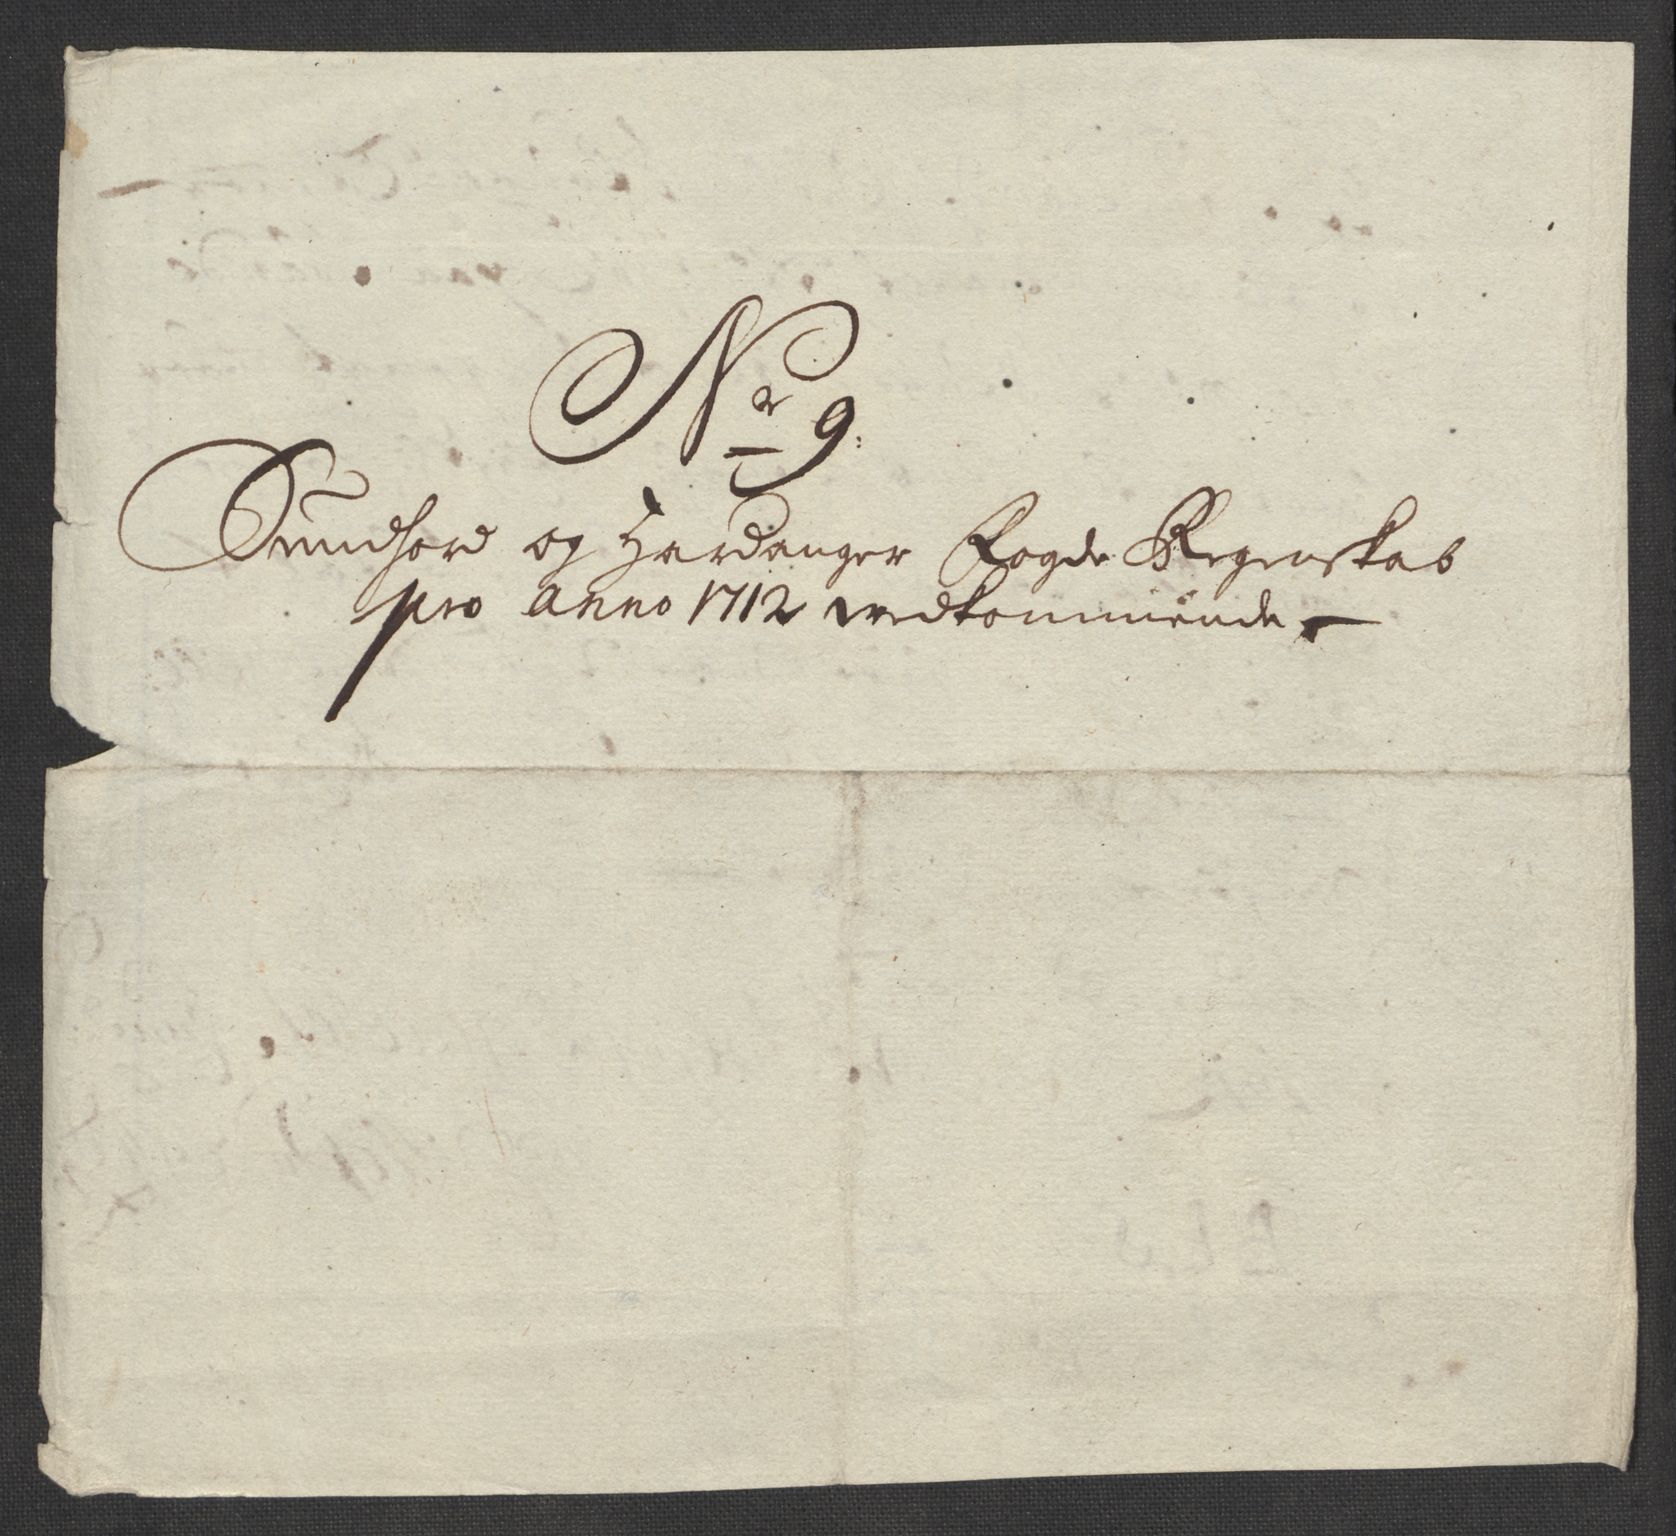 Nr 9:
Sundhord og Hardanger Fogde Regenskab
pro Anno 1712 vedkommende